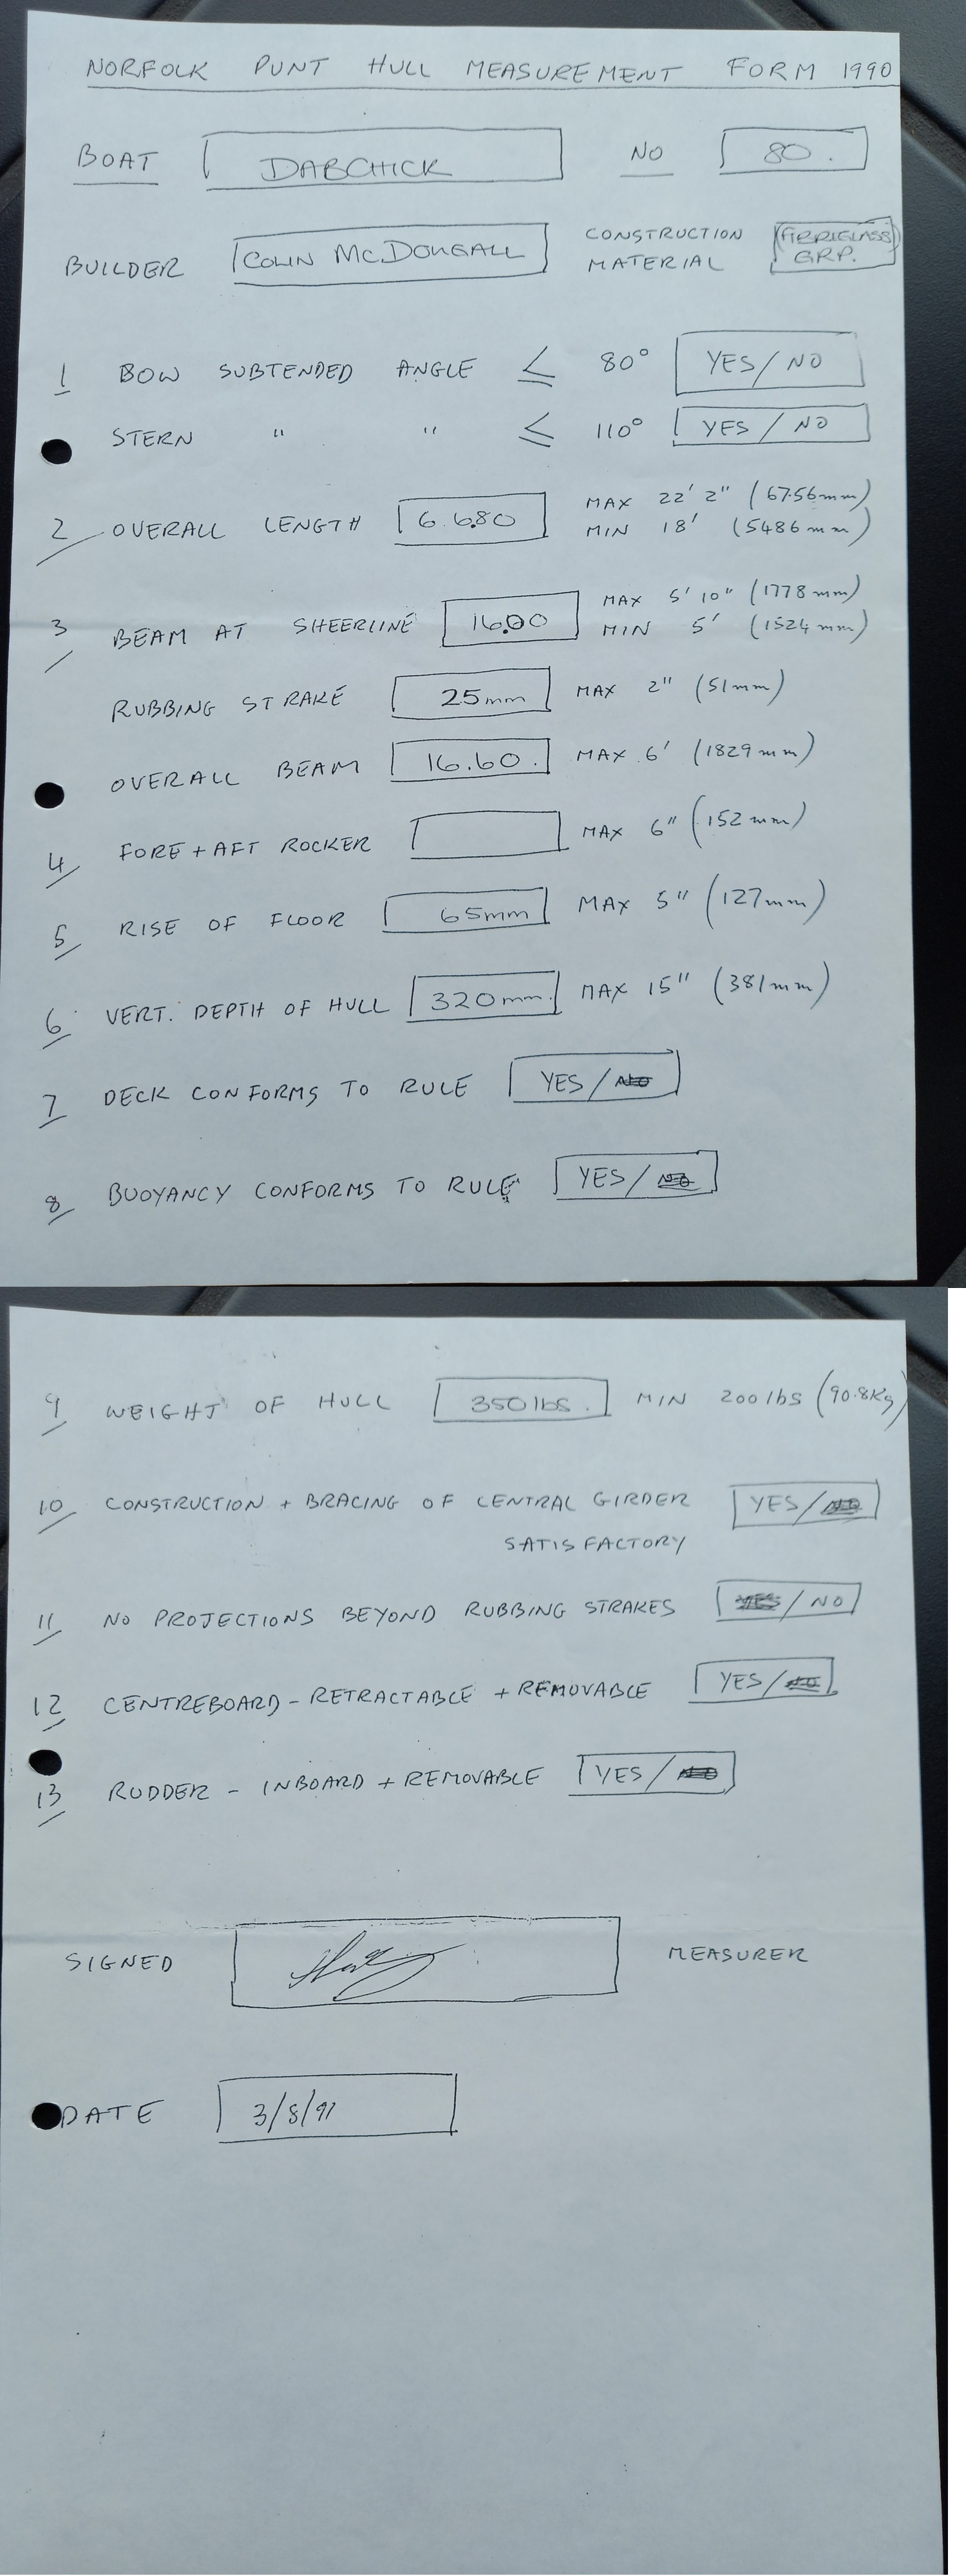 NORFOLK PUNT HULL MEASUREMENT FORM 1990
BOAT DABCHICK NO 80.
BUILDER COLIN McDOUGALL CONSTRUCTION MATERIAL (FIBREGLASS) GRP.
1 BOW SUBTENDED ANGLE ≤ 80° YES / NO
STERN " " ≤ 110° YES / NO
2 OVERALL LENGTH 6.680 MAX 22' 2" (6756mm)
MIN 18' (5486mm)
3 BEAM AT SHEERLINE 1600 MAX 5' 10" (1778mm)
MIN 5' (1524mm)
RUBBING STRAKE 25mm MAX 2" (51mm)
OVERALL BEAM 16.60. MAX 6' (1829mm)
4 FORE + AFT ROCKER MAX 6" (152mm)
5 RISE OF FLOOR 65mm MAX 5" (127mm)
6 VERT. DEPTH OF HULL 320mm. MAX 15" (381mm)
7 DECK CONFORMS TO RULE YES / NO
8 BUOYANCY CONFORMS TO RULE YES / NO
9 WEIGHT OF HULL 350lbs. MIN 200lbs (90.8Kg)
10 CONSTRUCTION + BRACING OF CENTRAL GIRDER YES / NO
SATISFACTORY
11 NO PROJECTIONS BEYOND RUBBING STRAKES YES / NO
12 CENTREBOARD - RETRACTABLE + REMOVABLE YES / NO
13 RUDDER - INBOARD + REMOVABLE YES / NO
SIGNED MEASURER
DATE 3/8/91